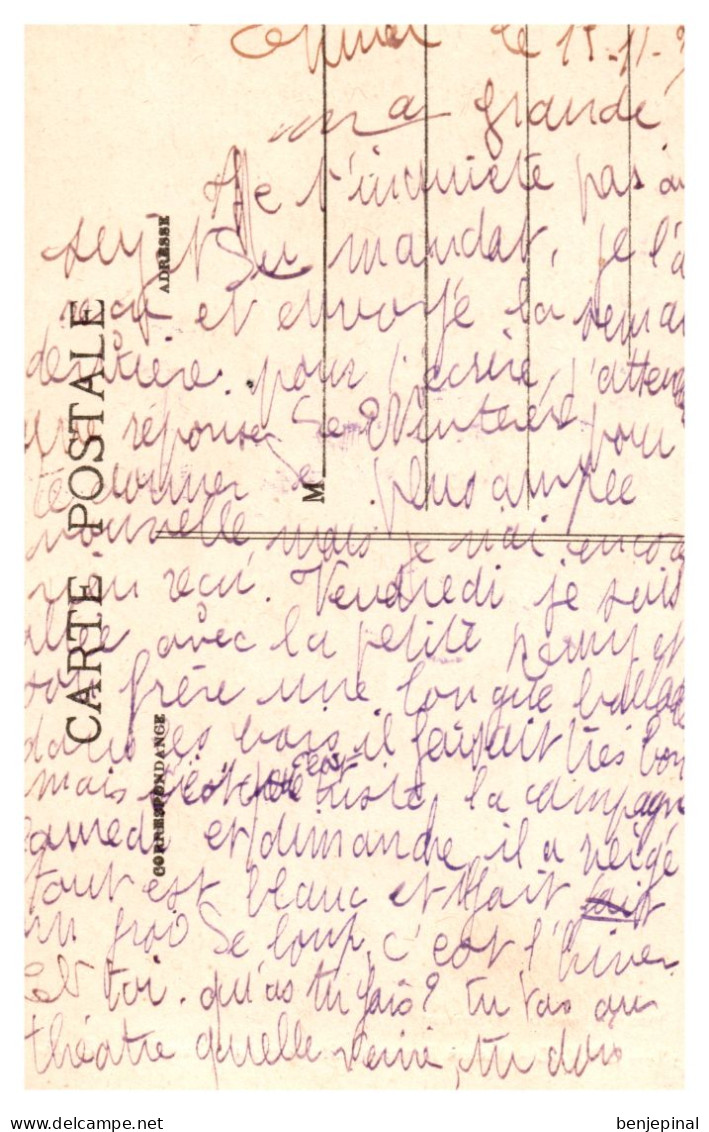 le 15.11.
ma grande
Ne t'inquiète pas au
sujet du mandat, je l'ai
reçu et envoyé la semai
dernière. pour t'écrire, j'atten
une réponse de pour
te donner plus ample
nouvelle mais je n'ai encor
rien reçu. Vendredi je suis
allée avec la petite et
son frère une longue ballade
dans les bois, il faisait très bon
mais c'est triste, la campagne
samedi et dimanche, il a neigé
tout est blanc et il fait fait
un froid de loup, c'est l'hiver
Et toi. qu'as tu fais? tu vas au
théatre quelle veine, tu dois
CARTE POSTALE
CORRESPONDANCE
ADRESSE
M
delcampe.net
benjepinal